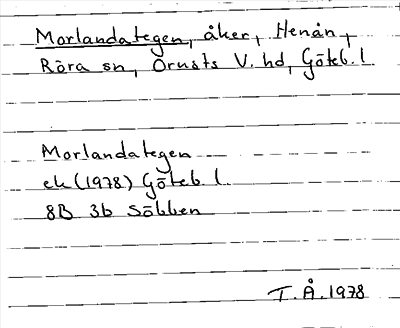 Morlandategen, åker, Henån,
Röra sn, Orusts V. hd, Göteb. l.
Morlandategen
ek (1978) Göteb. l.
8B 3b Söbben
T. Å. 1978